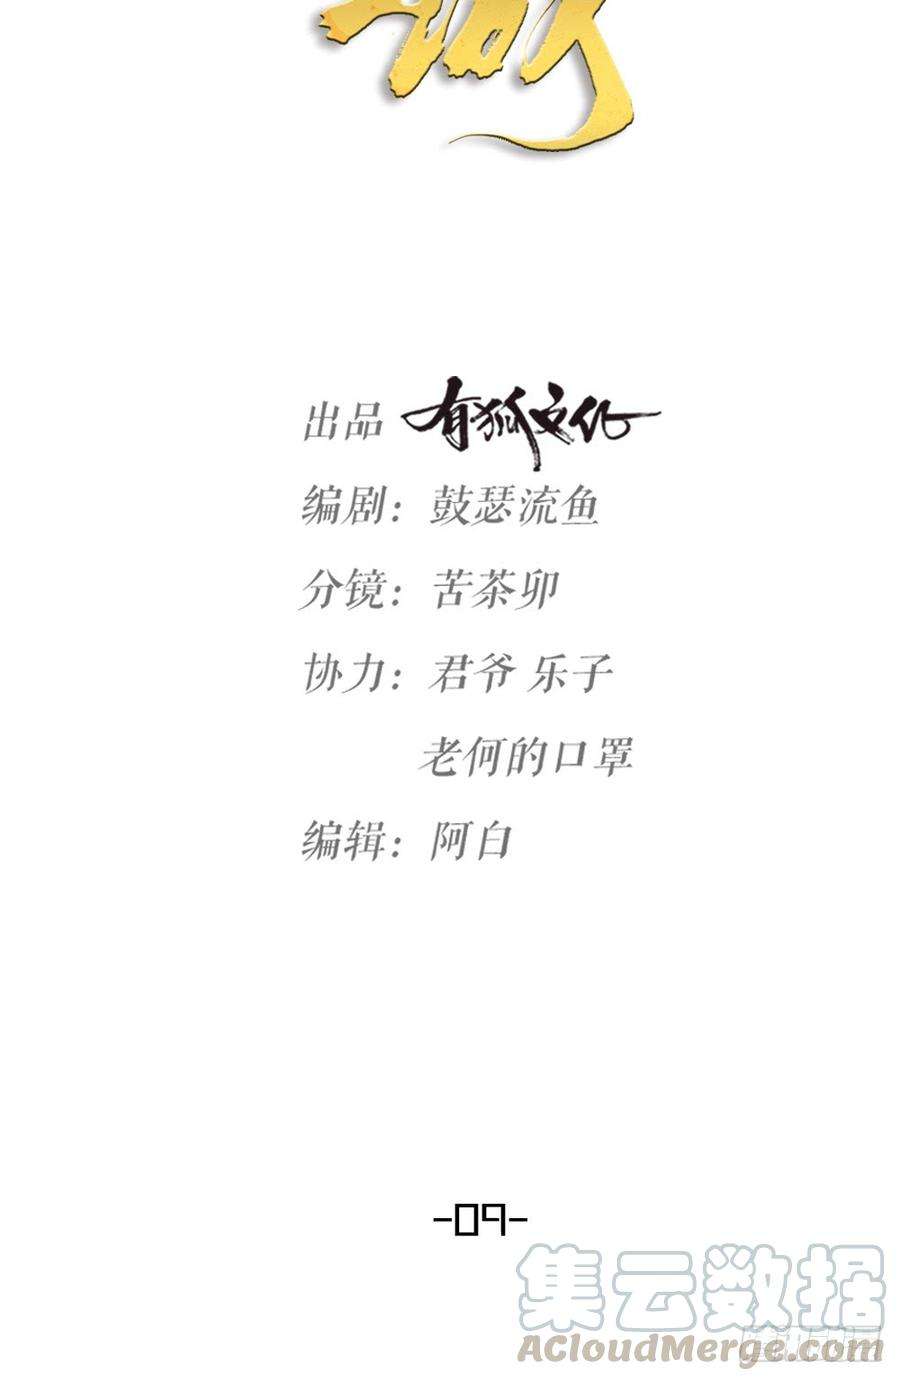 出品 有狐文化
编剧：鼓瑟流鱼
分镜：苦茶卯
协力：君爷 乐子
老何的口罩
编辑：阿白
-09-
集云数据
AcloudMerge.com